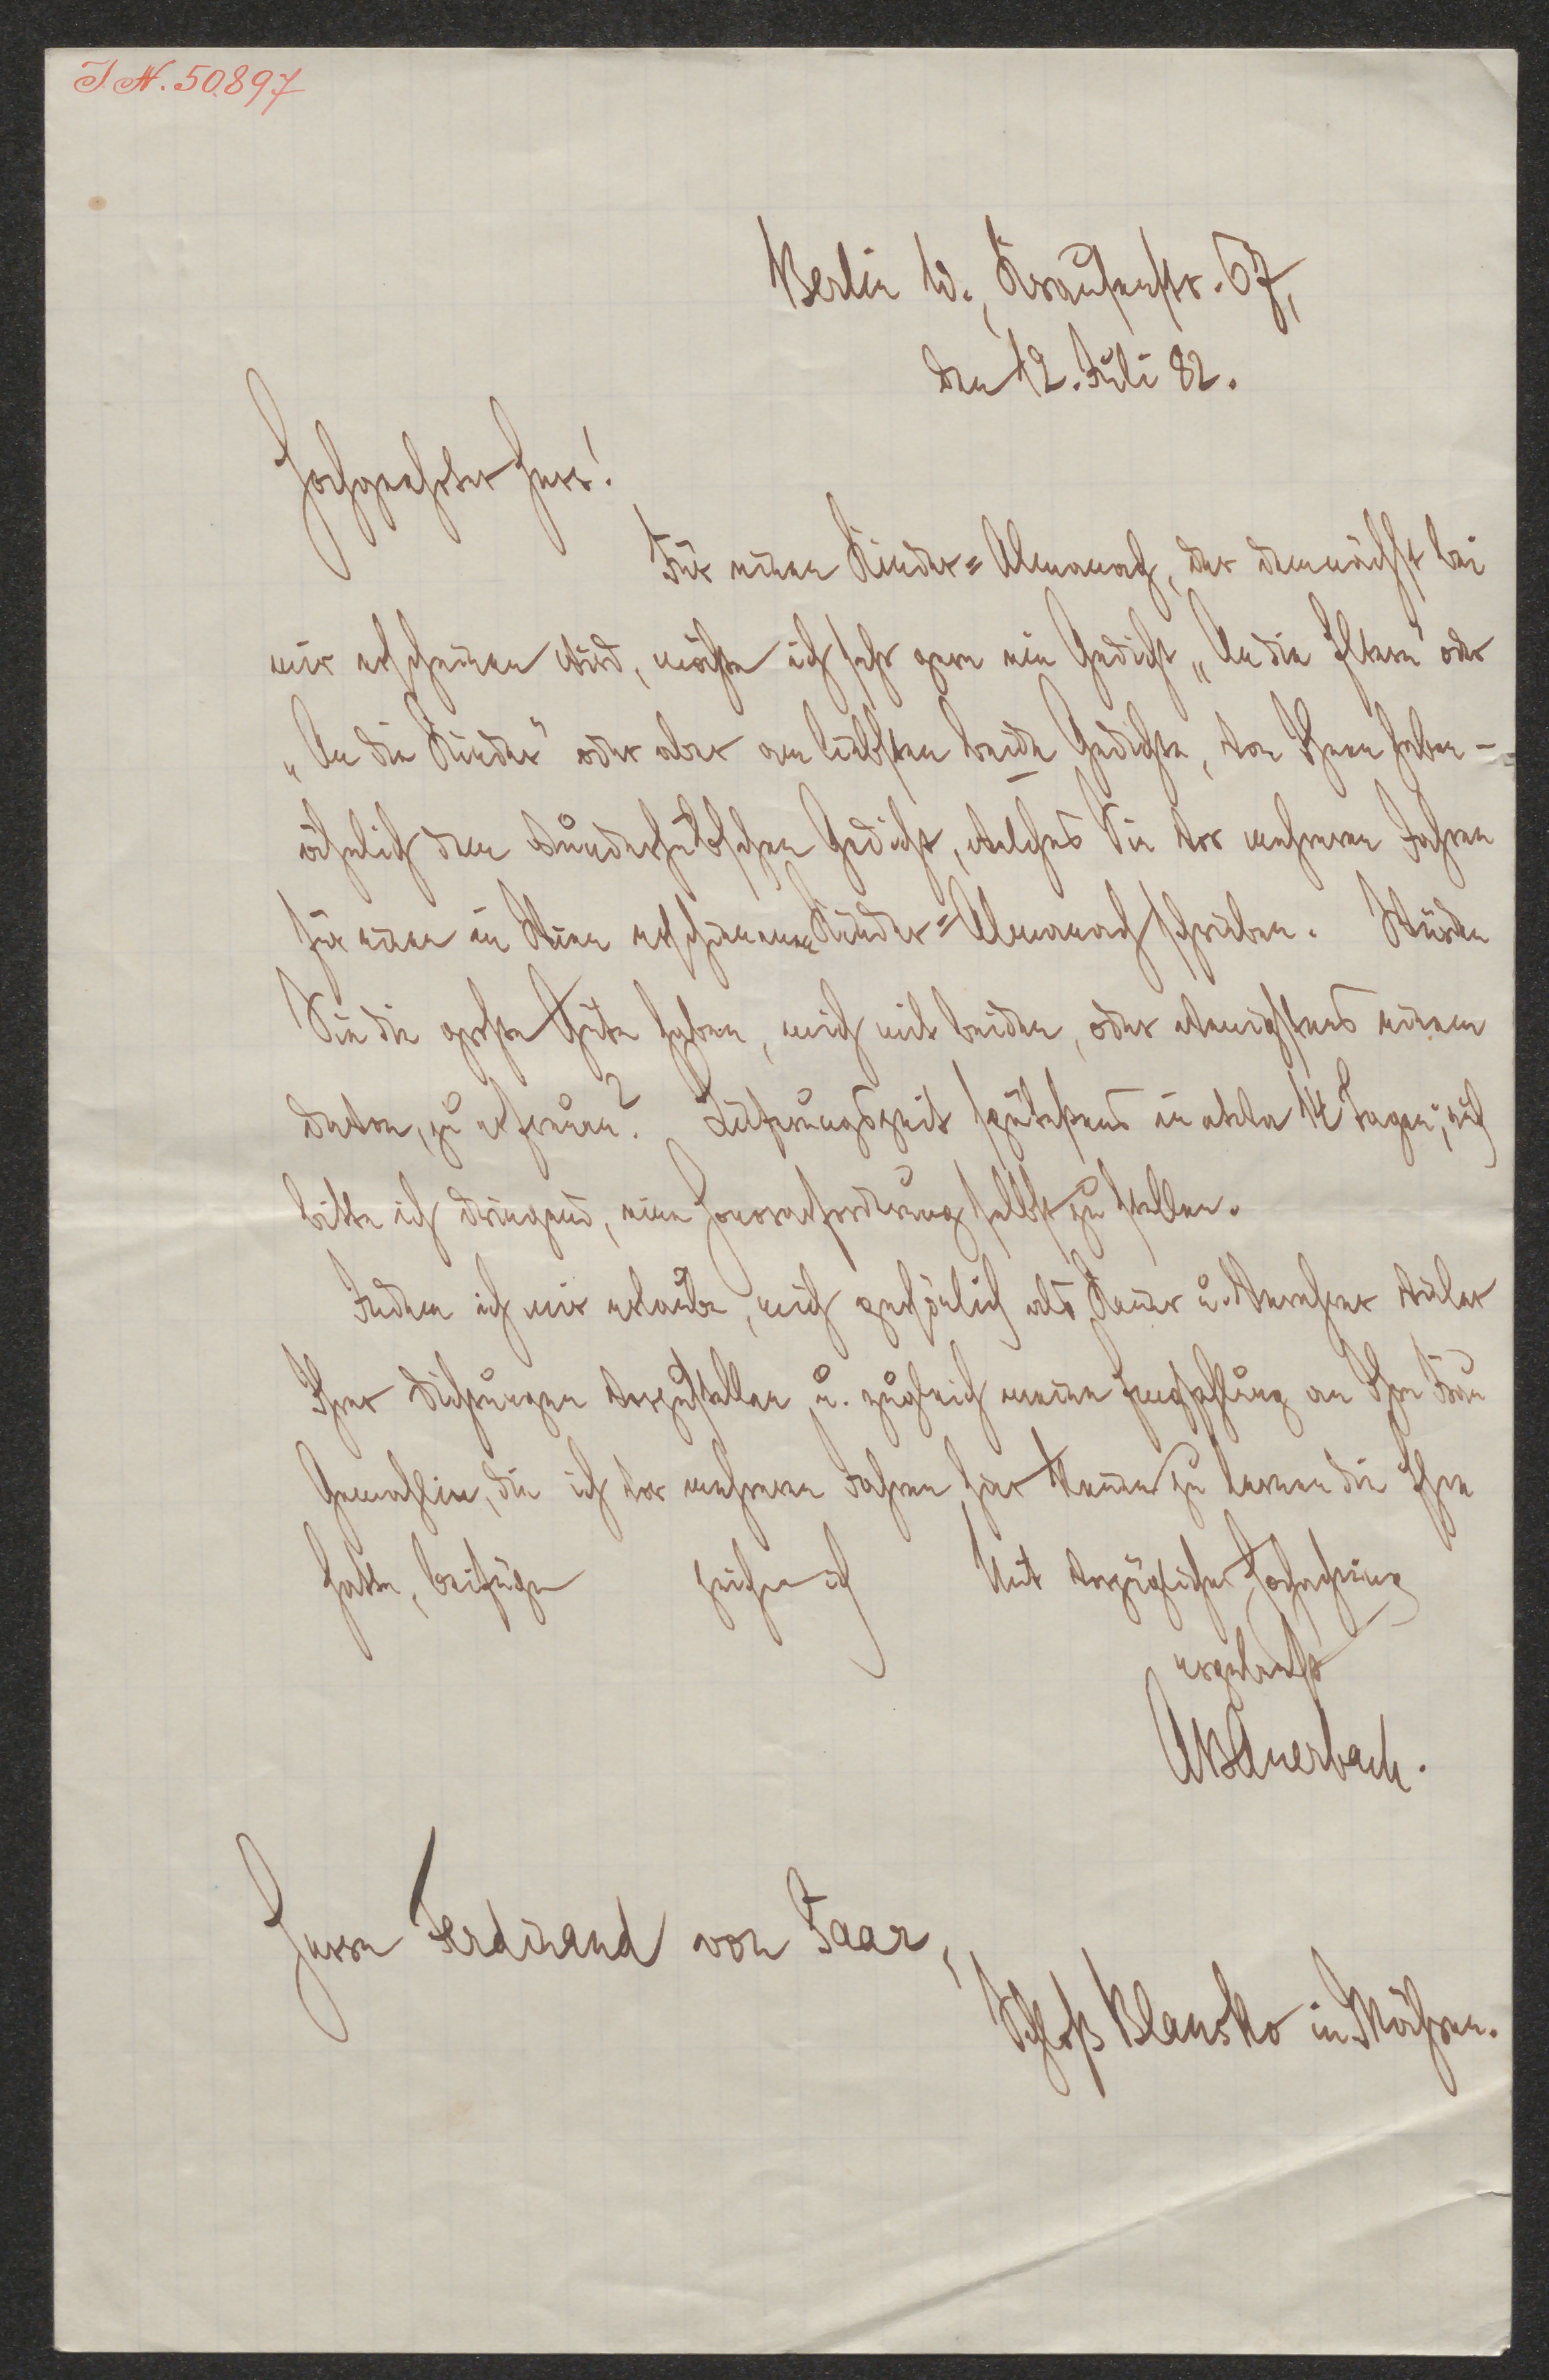 I. N. 50.897
Berlin W., Krausenstr. 67,
den 12. Juli 82.
Hochgeehrter Herr!
Für einen Kinder=Almanach, der demnächst bei
mir erscheinen wird, möchte ich sehr gern ein Gedicht „An die Eltern" oder
„An die Kinder" oder aber am liebsten beide Gedichte, von Ihnen haben –
ähnlich dem wunderhübschen Gedicht, welches Sie vor mehreren Jahren
für einen in Wien erschienenen Kinder=Almanach schrieben. Würden
Sie die große Güte haben, mich mit beiden, oder wenigstens einem
davon, zu erfreuen? Lieferungszeit spätestens in etwa 14 Tagen; auch
bitte ich dringend, eine Honorarforderung selbst zu stellen.
Indem ich mir erlaube, mich persönlich als Kenner u. Verehrer vieler
Ihrer Dichtungen vorzustellen u. zugleich meine Empfehlung an Ihre Frau
Gemahlin, die ich vor mehreren Jahren hier kennen zu lernen die Ehre
hatte, beifüge zeichne ich Mit vorzüglicher Hochachtung
ergebenst
AB Auerbach.
Herrn Ferdinand von Saar,
Schloß Blansko in Mähren.